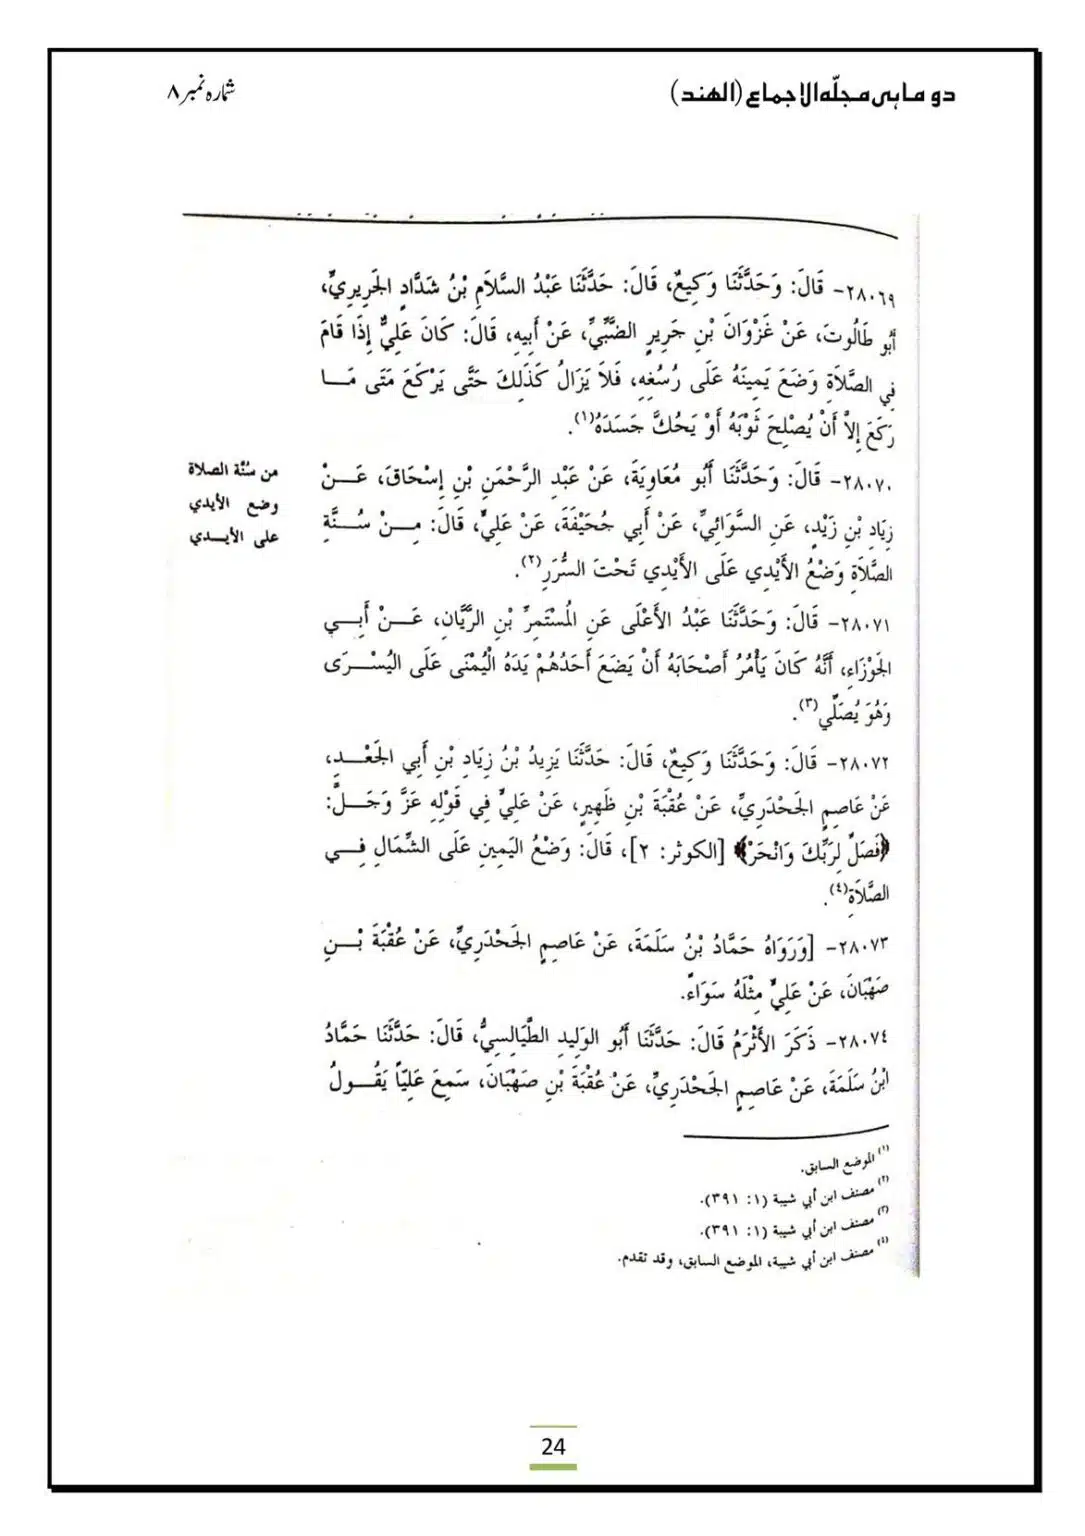 دو ماہی مجلّہ الاجماع (الهند)
شمارہ نمبر ۸
٢٨٠٦٩- قَالَ: وَحَدَّثَنَا وَكِيعٌ، قَالَ: حَدَّثَنَا عَبْدُ السَّلَامِ بْنُ شَدَّادٍ الجَرِيرِيُّ،
أَبُو طَالُوتَ، عَنْ غَزْوَانَ بْنِ جَرِيرٍ الضَّبِّيِّ، عَنْ أَبِيهِ، قَالَ: كَانَ عَلِيٌّ إِذَا قَامَ
فِي الصَّلَاةِ وَضَعَ يَمِينَهُ عَلَى رُسْغِهِ، فَلاَ يَزَالُ كَذَلِكَ حَتَّى يَرْكَعَ مَتَى مَا
رَكَعَ إِلاَّ أَنْ يُصْلِحَ ثَوْبَهُ أَوْ يَحُكَّ جَسَدَهُ(١).
من سُنَّة الصلاة
وضع الأيدي
على الأيدي
٢٨٠٧٠- قَالَ: وَحَدَّثَنَا أَبُو مُعَاوِيَةَ، عَنْ عَبْدِ الرَّحْمَنِ بْنِ إِسْحَاقَ، عَنْ
زِيَادِ بْنِ زَيْدٍ، عَنِ السَّوَائِيِّ، عَنْ أَبِي جُحَيْفَةَ، عَنْ عَلِيٍّ، قَالَ: مِنْ سُنَّةِ
الصَّلَاةِ وَضْعُ الأَيْدِي عَلَى الأَيْدِي تَحْتَ السُّرَرِ(٢).
٢٨٠٧١- قَالَ: وَحَدَّثَنَا عَبْدُ الأَعْلَى عَنِ الْمُسْتَمِرِّ بْنِ الرَّيَّانِ، عَنْ أَبِي
الجَوْزَاءِ، أَنَّهُ كَانَ يَأْمُرُ أَصْحَابَهُ أَنْ يَضَعَ أَحَدُهُمْ يَدَهُ الْيُمْنَى عَلَى اليُسْرَى
وَهُوَ يُصَلِّي(٣).
٢٨٠٧٢- قَالَ: وَحَدَّثَنَا وَكِيعٌ، قَالَ: حَدَّثَنَا يَزِيدُ بْنُ زِيَادِ بْنِ أَبِي الجَعْدِ،
عَنْ عَاصِمٍ الجَحْدَرِيِّ، عَنْ عُقْبَةَ بْنِ ظَهِيرٍ، عَنْ عَلِيٍّ فِي قَوْلِهِ عَزَّ وَجَلَّ:
﴿فَصَلِّ لِرَبِّكَ وَانْحَرْ﴾ [الكوثر: ٢]، قَالَ: وَضْعُ اليَمِينِ عَلَى الشِّمَالِ فِي
الصَّلَاةِ(٤).
٢٨٠٧٣- [وَرَوَاهُ حَمَّادُ بْنُ سَلَمَةَ، عَنْ عَاصِمٍ الجَحْدَرِيِّ، عَنْ عُقْبَةَ بْنِ
صَهْبَانَ، عَنْ عَلِيٍّ مِثْلَهُ سَوَاءً.
٢٨٠٧٤- ذَكَرَ الأَثْرَمُ قَالَ: حَدَّثَنَا أَبُو الوَلِيدِ الطَّيَالِسِيُّ، قَالَ: حَدَّثَنَا حَمَّادُ
ابْنُ سَلَمَةَ، عَنْ عَاصِمٍ الجَحْدَرِيِّ، عَنْ عُقْبَةَ بْنِ صَهْبَانَ، سَمِعَ عَلِيّاً يَقُولُ
(١) الموضع السابق.
(٢) مصنف ابن أبي شيبة (١: ٣٩١).
(٣) مصنف ابن أبي شيبة (١: ٣٩١).
(٤) مصنف ابن أبي شيبة، الموضع السابق، وقد تقدم.
24